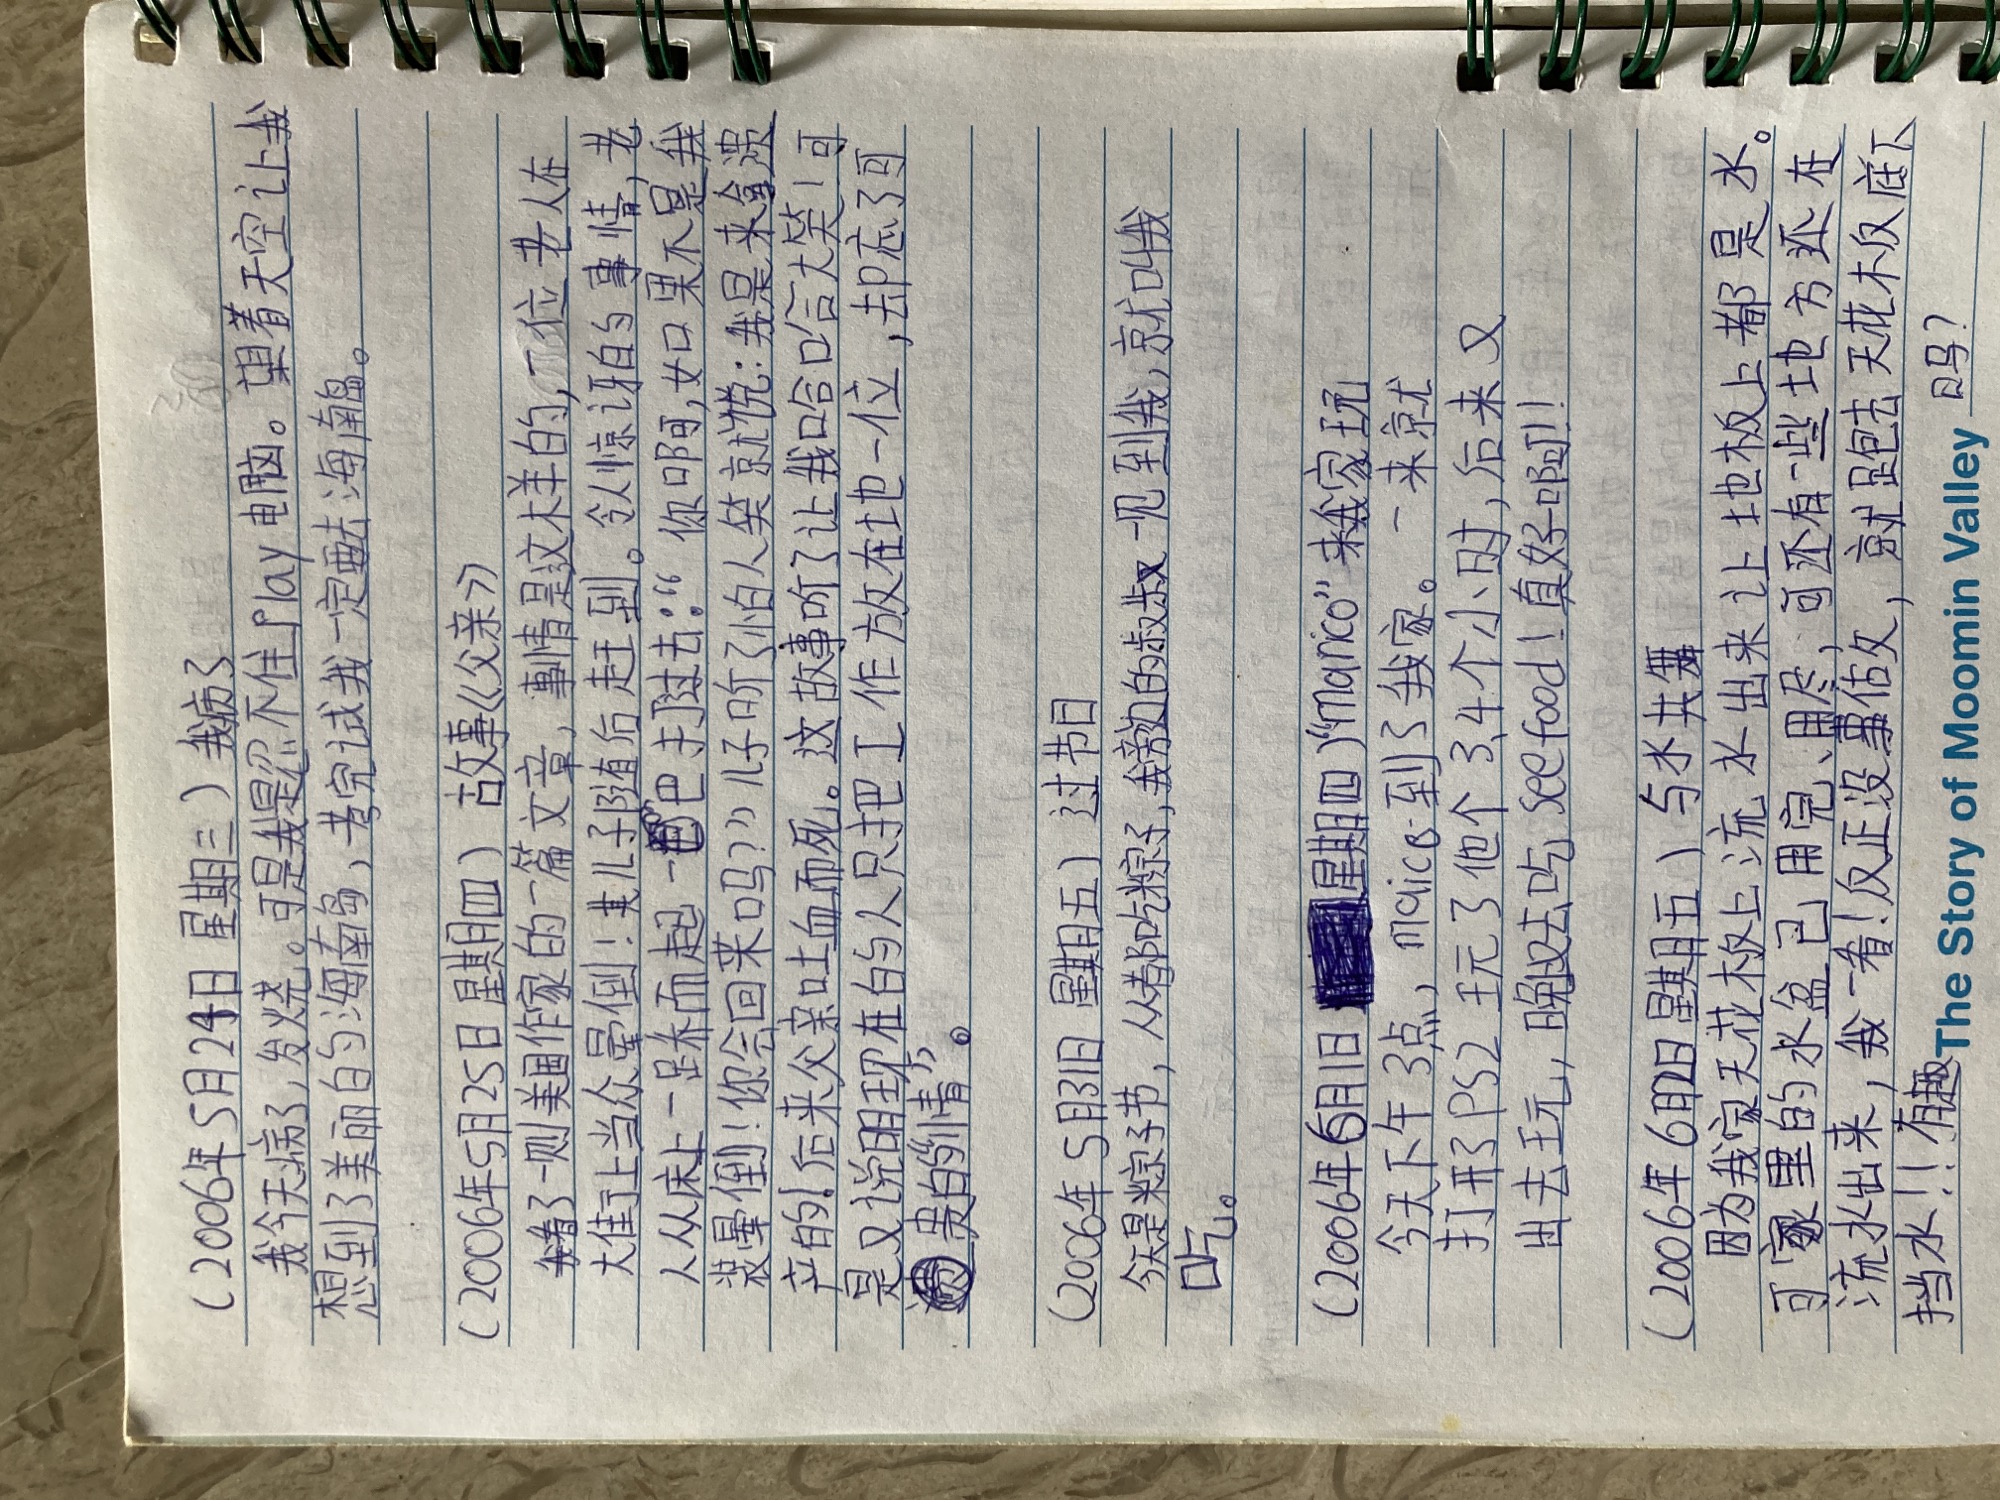 (2006年5月24日 星期三) 我病了
我今天病了,发烧。可是我是忍不住play电脑。望着天空让我
想到了美丽的海南岛,考完试我一定要去海南岛。
(2006年5月25日 星期四) 故事《父亲》
我看了一则美国作家的一篇文章,事情是这样的,一位老人在
大街上当众晕倒!其儿子随后赶到。令人惊讶的事情,老
人从床上一跃而起一巴打过去:“你啊,如果不是我
装晕倒!你会回来吗?”儿子听了怕人笑就说:我是来拿遗
产的!后来父亲吐血而死。这故事听了让我哈哈大笑!可
是又说明现在的人只把工作放在地一位,却忘了可
贵的“情”。
(2006年5月31日 星期五) 过节日
今天是粽子节,从巷都吃粽子,我旁边的叔叔一见到我,就叫我
吃。
(2006年6月1日 星期四)“Marico”来我家玩
今天下午3点, maice到了我家。一来就
打开了PS2玩了他个3,4个小时,后来又
出去玩,晚饭去吃see food!真好啊!!
(2006年6月2日 星期五) 与水共舞
因为我家天花板上流水出来让地板上都是水。
可家里的水盆已用完、用尽,可还有一些地方还在
流水出来,我一看!反正没事做,就跑去天花板底下
挡水!!有趣吗?
The Story of Moomin Valley